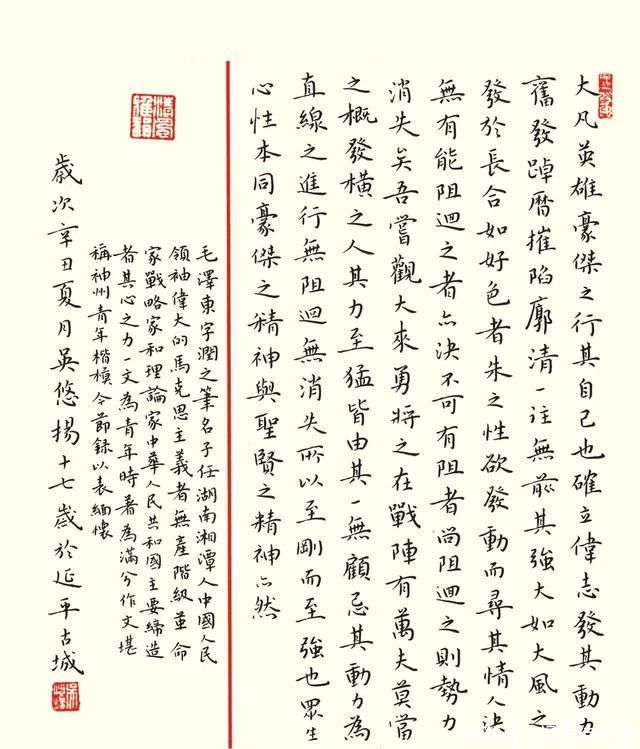 大凡英雄豪傑之行其自己也確立偉志發其動力
奮發踔曆摧陷廓清一往無前其強大如大風之
發於長合如好色者朱之性欲發動而尋其情人決
無有能阻迴之者亦決不可有阻者尚阻迴之則勢力
消失矣吾嘗觀大來勇將之在戰陣有萬夫莫當
之概發橫之人其力至猛皆由其一無顧忌其動力為
直線之進行無阻迴無消失所以至剛而至強也眾生
心性本同豪傑之精神與聖賢之精神亦然
毛澤東字潤之筆名子任湖南湘潭人中國人民
領袖偉大的馬克思主義者無產階級革命
家戰略家和理論家中華人民共和國主要締造
者其心之力一文為青年時著為滿分作文堪
稱神州青年楷模今節錄以表緬懷
歲次辛丑夏月吳悠揚十七歲於延平古城